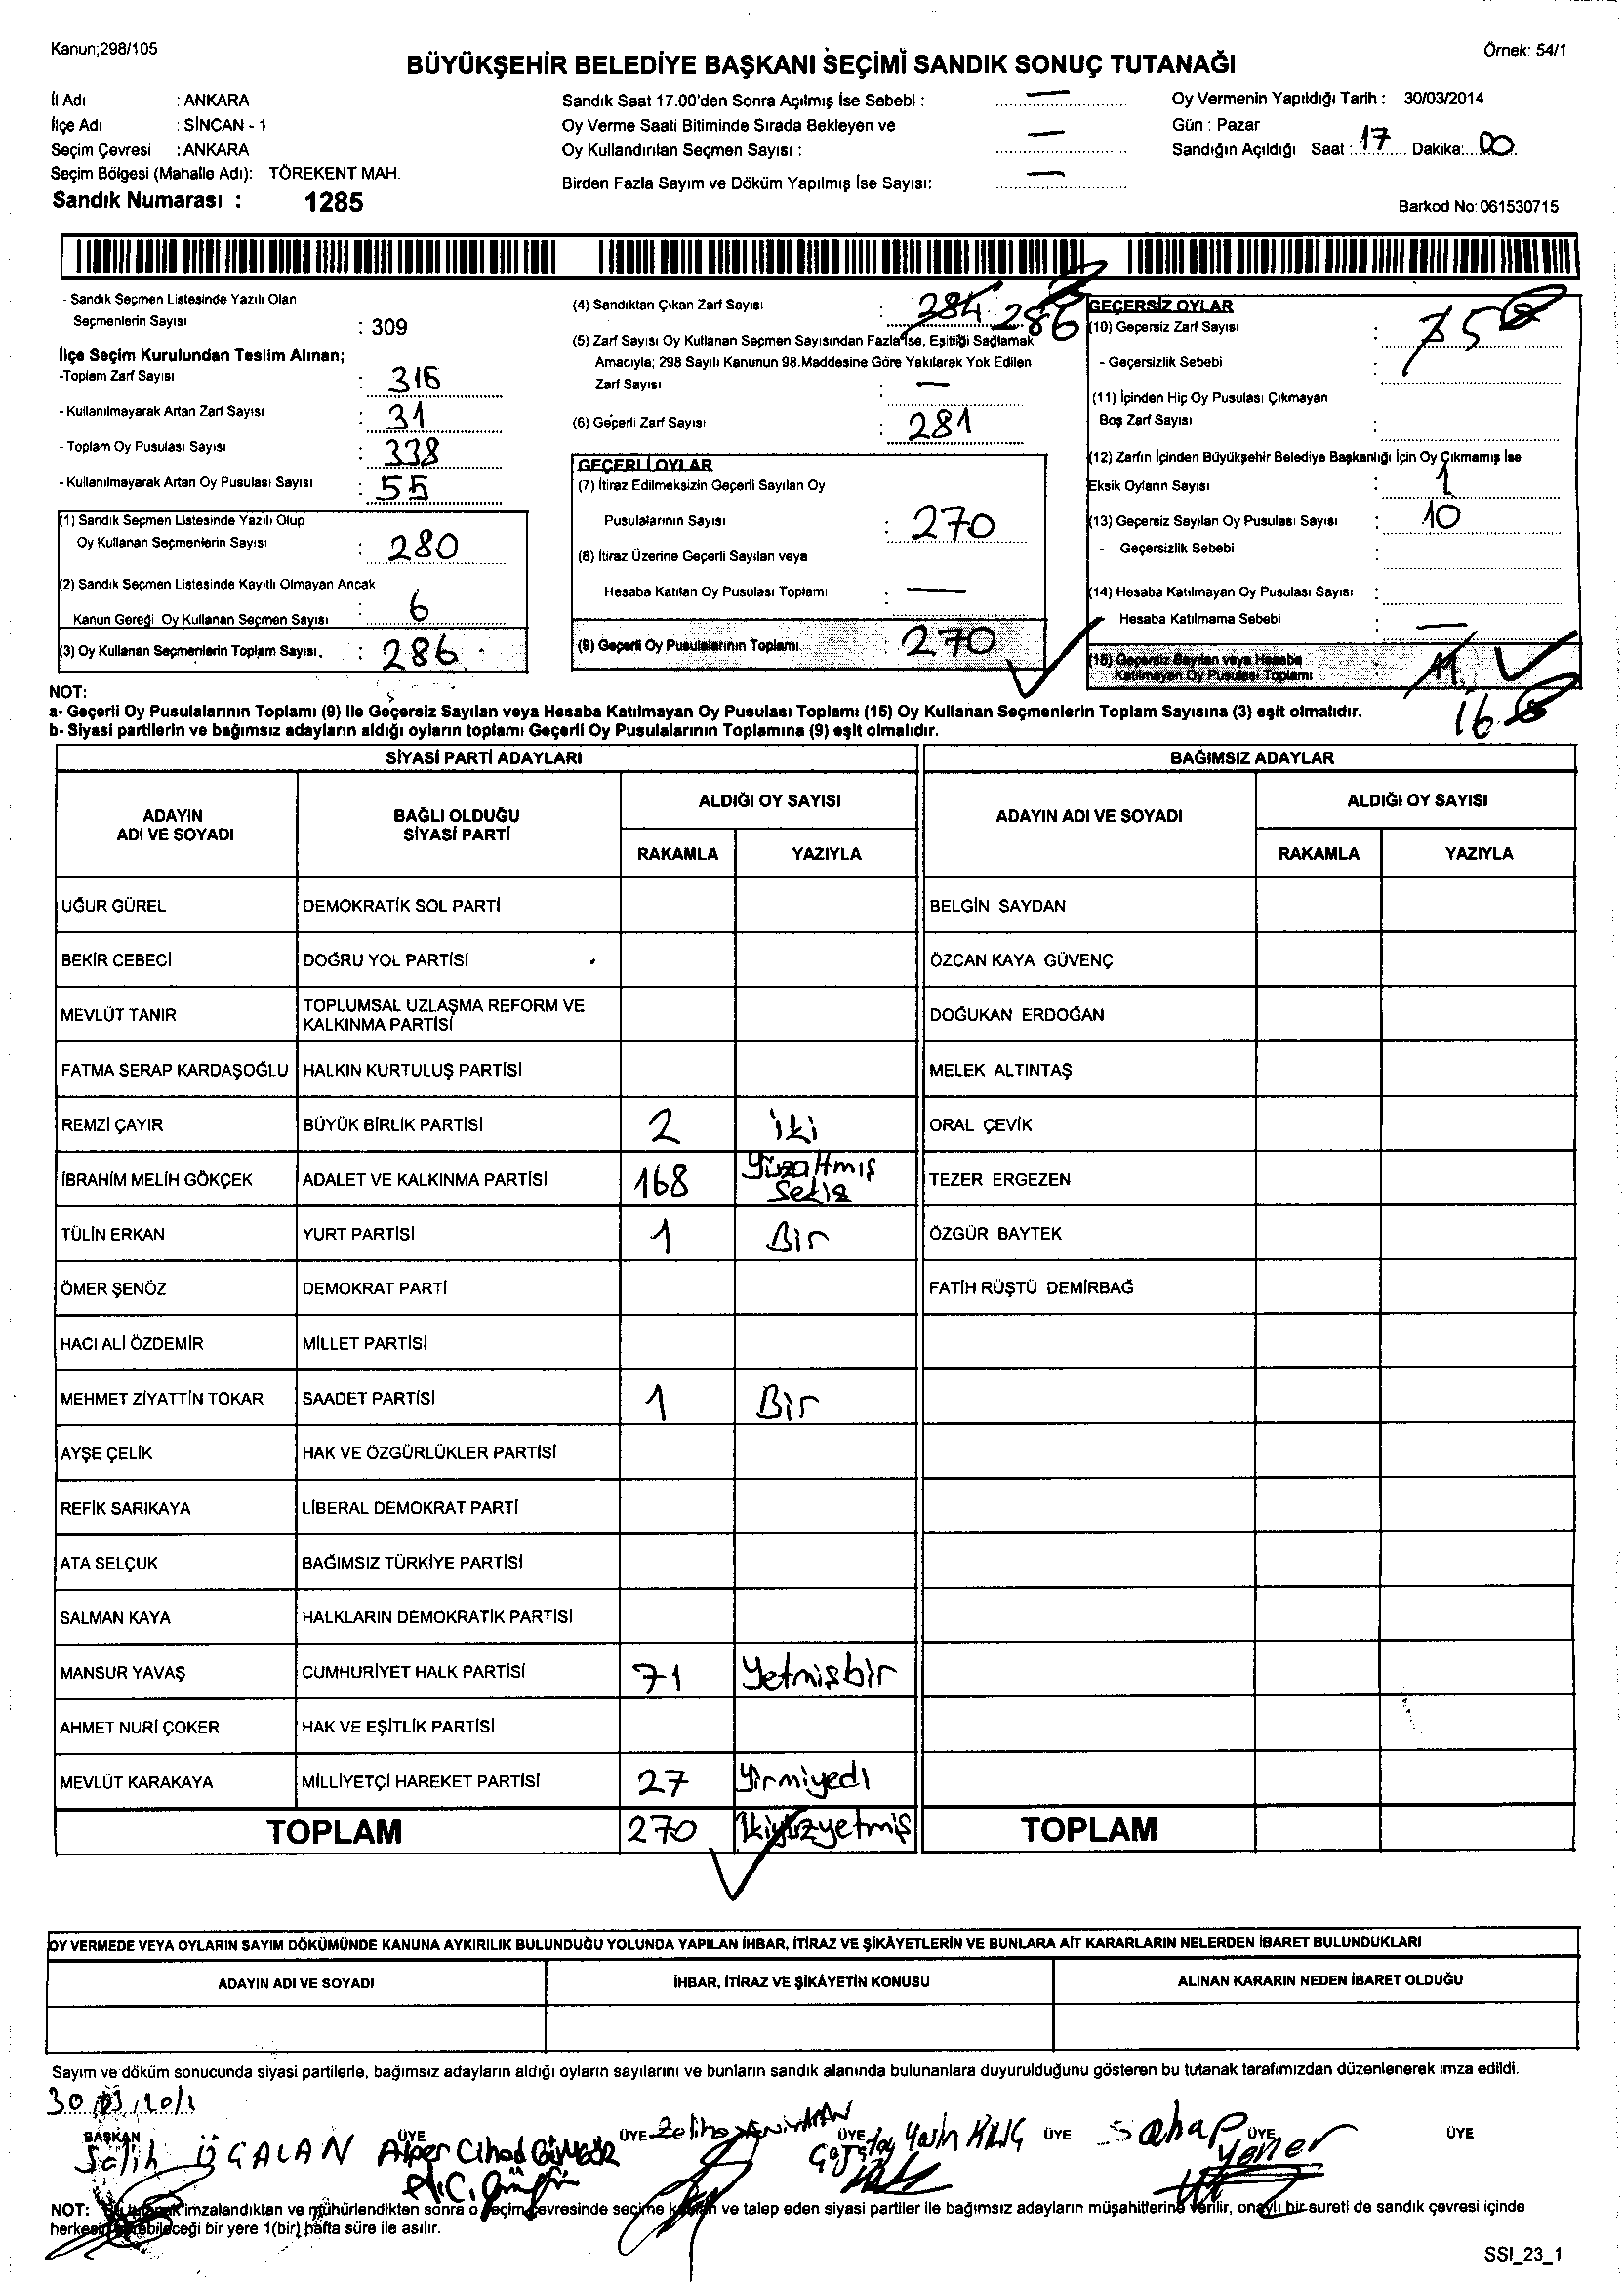 Kanun;298/105
Örnek: 54/1
BÜYÜKŞEHİR BELEDİYE BAŞKANI SEÇİMİ SANDIK SONUÇ TUTANAĞI
İl Adı : ANKARA
İlçe Adı : SİNCAN - 1
Seçim Çevresi : ANKARA
Seçim Bölgesi (Mahalle Adı): TÖREKENT MAH.
Sandık Numarası : 1285
Sandık Saat 17.00'den Sonra Açılmış İse Sebebi : —
Oy Verme Saati Bitiminde Sırada Bekleyen ve
Oy Kullandırılan Seçmen Sayısı : —
Birden Fazla Sayım ve Döküm Yapılmış İse Sayısı: —
Oy Vermenin Yapıldığı Tarih : 30/03/2014
Gün : Pazar
Sandığın Açıldığı Saat : 17 Dakika: 00
Barkod No:061530715
- Sandık Seçmen Listesinde Yazılı Olan
Seçmenlerin Sayısı : 309
İlçe Seçim Kurulundan Teslim Alınan;
-Toplam Zarf Sayısı : 316
- Kullanılmayarak Artan Zarf Sayısı : 31
- Toplam Oy Pusulası Sayısı : 338
- Kullanılmayarak Artan Oy Pusulası Sayısı : 55
(1) Sandık Seçmen Listesinde Yazılı Olup
Oy Kullanan Seçmenlerin Sayısı : 280
(2) Sandık Seçmen Listesinde Kayıtlı Olmayan Ancak
Kanun Gereği Oy Kullanan Seçmen Sayısı : 6
(3) Oy Kullanan Seçmenlerin Toplam Sayısı. : 286
(4) Sandıktan Çıkan Zarf Sayısı : 284 286
(5) Zarf Sayısı Oy Kullanan Seçmen Sayısından Fazla İse, Eşitliği Sağlamak
Amacıyla; 298 Sayılı Kanunun 98.Maddesine Göre Yakılarak Yok Edilen
Zarf Sayısı : —
(6) Geçerli Zarf Sayısı : 281
GEÇERLİ OYLAR
(7) İtiraz Edilmeksizin Geçerli Sayılan Oy
Pusulalarının Sayısı : 270
(8) İtiraz Üzerine Geçerli Sayılan veya
Hesaba Katılan Oy Pusulası Toplamı : —
(9) Geçerli Oy Pusulalarının Toplamı : 270
GEÇERSİZ OYLAR
(10) Geçersiz Zarf Sayısı : 5
- Geçersizlik Sebebi :
(11) İçinden Hiç Oy Pusulası Çıkmayan
Boş Zarf Sayısı :
(12) Zarfın İçinden Büyükşehir Belediye Başkanlığı İçin Oy Çıkmamış İse
Eksik Oyların Sayısı : 1
(13) Geçersiz Sayılan Oy Pusulası Sayısı : 10
- Geçersizlik Sebebi :
(14) Hesaba Katılmayan Oy Pusulası Sayısı :
Hesaba Katılmama Sebebi : —
(15) Geçersiz Sayılan veya Hesaba
Katılmayan Oy Pusulası Toplamı : 11
16
NOT:
a- Geçerli Oy Pusulalarının Toplamı (9) İle Geçersiz Sayılan veya Hesaba Katılmayan Oy Pusulası Toplamı (15) Oy Kullanan Seçmenlerin Toplam Sayısına (3) eşit olmalıdır.
b- Siyasi partilerin ve bağımsız adayların aldığı oyların toplamı Geçerli Oy Pusulalarının Toplamına (9) eşit olmalıdır.
SİYASİ PARTİ ADAYLARI BAĞIMSIZ ADAYLAR
ADAYIN ADI VE SOYADI BAĞLI OLDUĞU SİYASİ PARTİ ALDIĞI OY SAYISI ADAYIN ADI VE SOYADI ALDIĞI OY SAYISI
RAKAMLA YAZIYLA RAKAMLA YAZIYLA
UĞUR GÜREL DEMOKRATİK SOL PARTİ BELGİN SAYDAN
BEKİR CEBECİ DOĞRU YOL PARTİSİ ÖZCAN KAYA GÜVENÇ
MEVLÜT TANIR TOPLUMSAL UZLAŞMA REFORM VE KALKINMA PARTİSİ DOĞUKAN ERDOĞAN
FATMA SERAP KARDAŞOĞLU HALKIN KURTULUŞ PARTİSİ MELEK ALTINTAŞ
REMZİ ÇAYIR BÜYÜK BİRLİK PARTİSİ 2 iki ORAL ÇEVİK
İBRAHİM MELİH GÖKÇEK ADALET VE KALKINMA PARTİSİ 168 Yüzaltmış Sekiz TEZER ERGEZEN
TÜLİN ERKAN YURT PARTİSİ 1 Bir ÖZGÜR BAYTEK
ÖMER ŞENÖZ DEMOKRAT PARTİ FATİH RÜŞTÜ DEMİRBAĞ
HACI ALİ ÖZDEMİR MİLLET PARTİSİ
MEHMET ZİYATTİN TOKAR SAADET PARTİSİ 1 Bir
AYŞE ÇELİK HAK VE ÖZGÜRLÜKLER PARTİSİ
REFİK SARIKAYA LİBERAL DEMOKRAT PARTİ
ATA SELÇUK BAĞIMSIZ TÜRKİYE PARTİSİ
SALMAN KAYA HALKLARIN DEMOKRATİK PARTİSİ
MANSUR YAVAŞ CUMHURİYET HALK PARTİSİ 71 Yetmişbir
AHMET NURİ ÇOKER HAK VE EŞİTLİK PARTİSİ
MEVLÜT KARAKAYA MİLLİYETÇİ HAREKET PARTİSİ 27 Yirmiyedi
TOPLAM 270 İkiyüzyetmiş TOPLAM
OY VERMEDE VEYA OYLARIN SAYIM DÖKÜMÜNDE KANUNA AYKIRILIK BULUNDUĞU YOLUNDA YAPILAN İHBAR, İTİRAZ VE ŞİKÂYETLERİN VE BUNLARA AİT KARARLARIN NELERDEN İBARET BULUNDUKLARI
ADAYIN ADI VE SOYADI İHBAR, İTİRAZ VE ŞİKÂYETİN KONUSU ALINAN KARARIN NEDEN İBARET OLDUĞU
Sayım ve döküm sonucunda siyasi partilerle, bağımsız adayların aldığı oyların sayılarını ve bunların sandık alanında bulunanlara duyurulduğunu gösteren bu tutanak tarafımızdan düzenlenerek imza edildi.
BAŞKAN ÜYE ÜYE ÜYE ÜYE ÜYE ÜYE
Salih ÖCALAN Alper Cihad Zeliha Yasin KILIÇ Sahap Yener
NOT: imzalandıktan ve mühürlendikten sonra o seçim çevresinde seçime ve talep eden siyasi partiler ile bağımsız adayların müşahitlerine verilir, onaylı bir sureti de sandık çevresi içinde
bir yere 1(bir) hafta süre ile asılır.
SSI_23_1